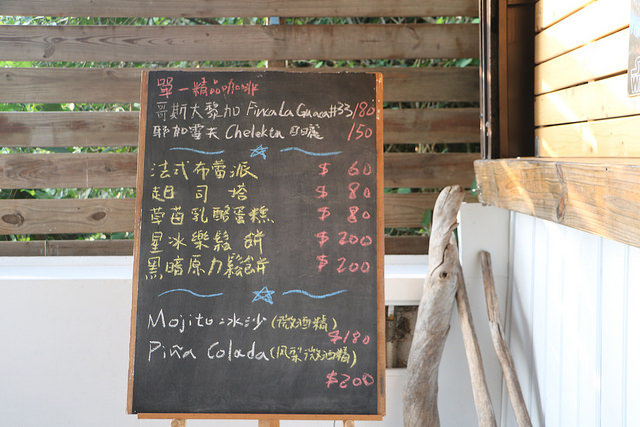 單一精品咖啡
哥斯大黎加 Finca La Guaca #33 180
耶加雪夫 Chelektu 日曬 150
法式布蕾派 $ 60
起司塔 $ 80
草莓乳酪蛋糕 $ 80
星冰樂鬆餅 $200
黑暗原力鬆餅 $200
Mojito 冰沙 (微酒精)
$180
Piña Colada (凤梨微酒精)
$200